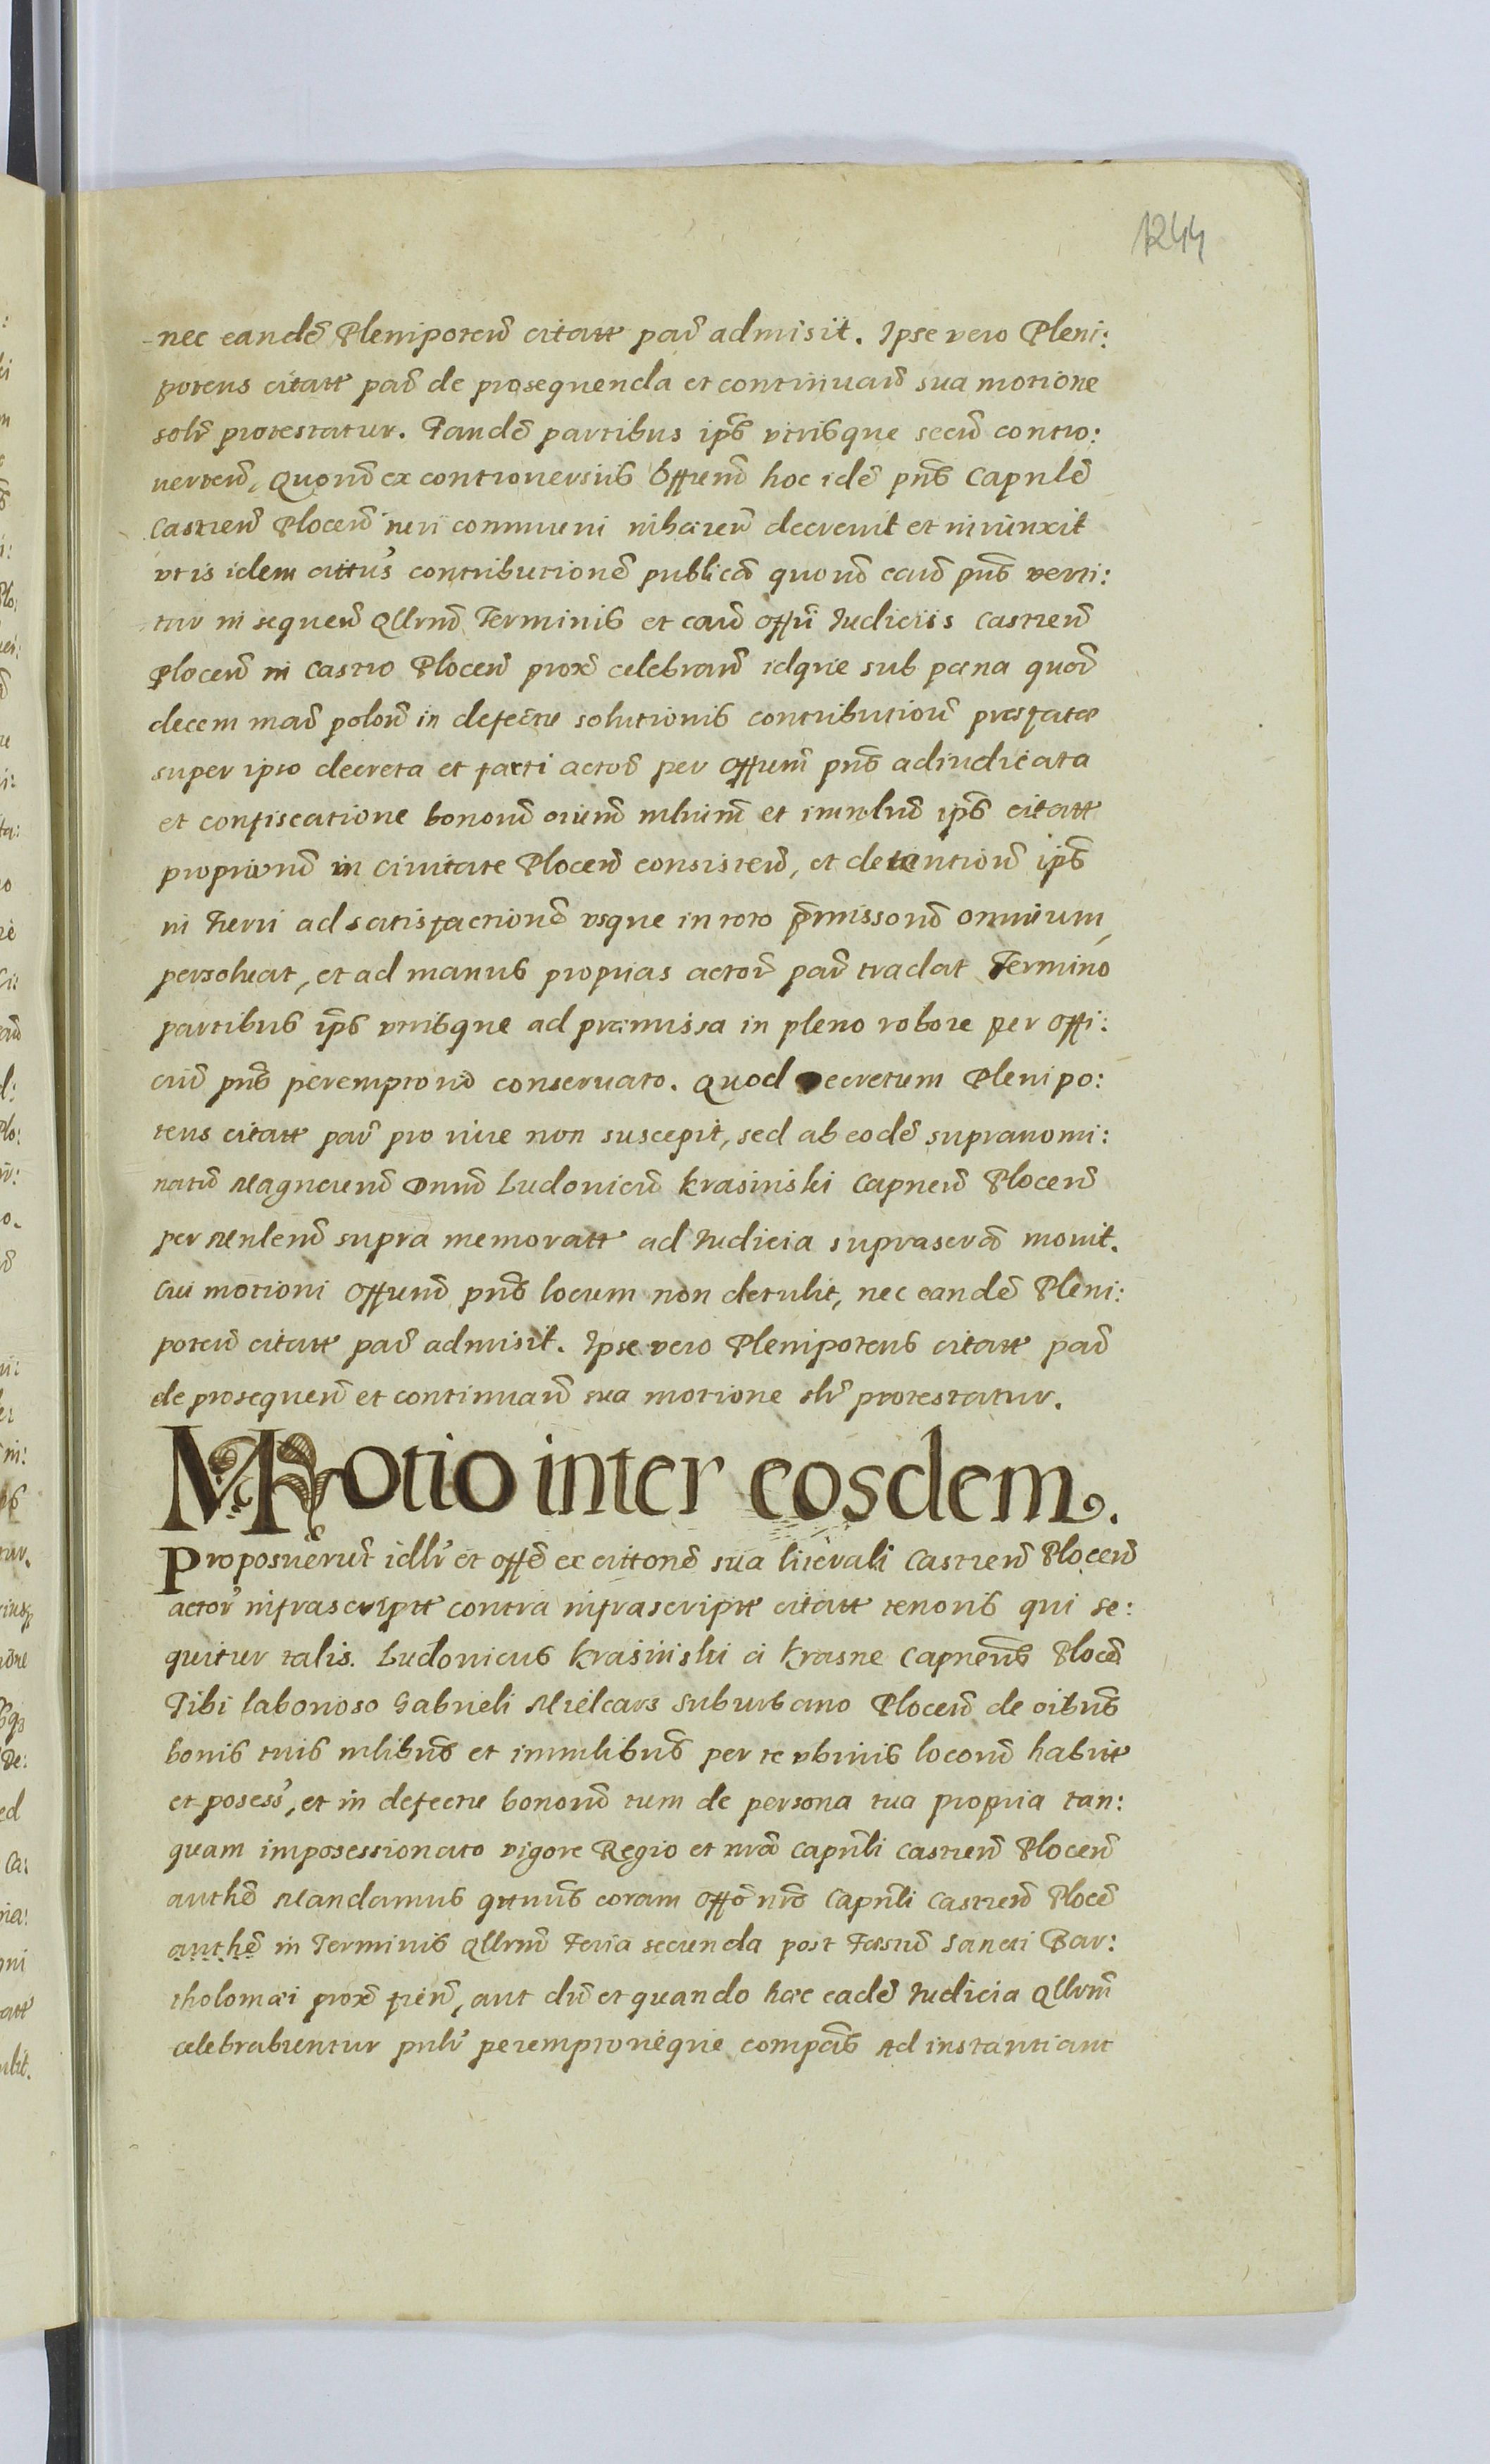 1244
nec eandē Plenipoten̄ citatt par̄ admisit. Ipse vero Pleni:
potens citatt par̄ de prosequenda et continuan̄ sua motione
solr̄ protestatur. Tandē partibus ip̄s vtrisque secū contro:
verten̄, Quorū ex controversiis Offum̄ hoc idē pn̄s Capnlē
Castren̄ Plocen̄ iuri communi inhæren̄ decrevit et iniunxit
vt is idem citt9 contributionē publicā quorū caū pn̄s verti:
tur in sequen̄ Qllrm̄ Terminis et cau̅ offii Iudiciis Castren̄
Plocen̄ in Castro Plocen̄ prox̄ celebran̄ idque sub pœna quor̄
decem mar̄ polon̄ in defectu solutionis contribution̄ præfatæ
super ipso decreta et parti actor̄ per Offum̄ pn̄s adiudicata
et confiscatione bonorū oium̄ mbium̄ et immbliū ip̄s citatt
propriorū in Civitate Plocen̄ consisten̄, et detention̄ ip̄s
in Turri ad satisfactionē vsque in toto p̄missorū omnium,
persolvat, et ad manus proprias actor̄ par̄ tradat Termino
partibus ip̄s vtrisque ad præmissa in pleno robore per Offi:
ciū pn̄s peremptorio conservato. Quod Decretum Plenipo:
tens citatt par̄ pro iure non suscepit, sed ab eodē supranomi:
natū Magncum̄ Dnum̄ Ludovicū Krasinski Capneū Plocen̄
per Mnlem̄ supra memoratt ad Iudicia suprascr̄a movit.
Cui motioni Offum̄ pn̄s locum non detulit, nec eandē Pleni:
poten̄ citatt par̄ admisit. Ipse vero Plenipotens citatt par̄
de prosequen̄ et continuan̄ sua motione slr̄ protestatur.
Motio inter eosdem.
Proposuerunt idlr̄ et offē ex cittonē sua literali Castren̄ Plocen̄
actor̄ infrascriptt contra infrascriptt citatt tenoris qui se:
quitur talis. Ludovicus Krasinski a Krasne Capneus̄ Plocē
Tibi laborioso Gabrieli Mielcars suburbano Plocen̄ de oibus̄
bonis tuis mlibus̄ et immlibus̄ per te vbivis locorū habitt
et posess9, et in defectu bonorū tum de persona tua propria tan:
quam imposessionato vigore Regio et nrā Capnli Castren̄ Plocen̄
authē Mandamus qtinus̄ coram Offō nrō Capnli Castren̄ Plocē
authē in Terminis Qllrm̄ feria secunda post Festū Sancti Bar:
tholomæi prox̄ fien̄, aut dū et quando hæc eadē Iudicia Qllrm̄
celebrabuntur pnlr̄ peremptorieque compās Ad instantiam